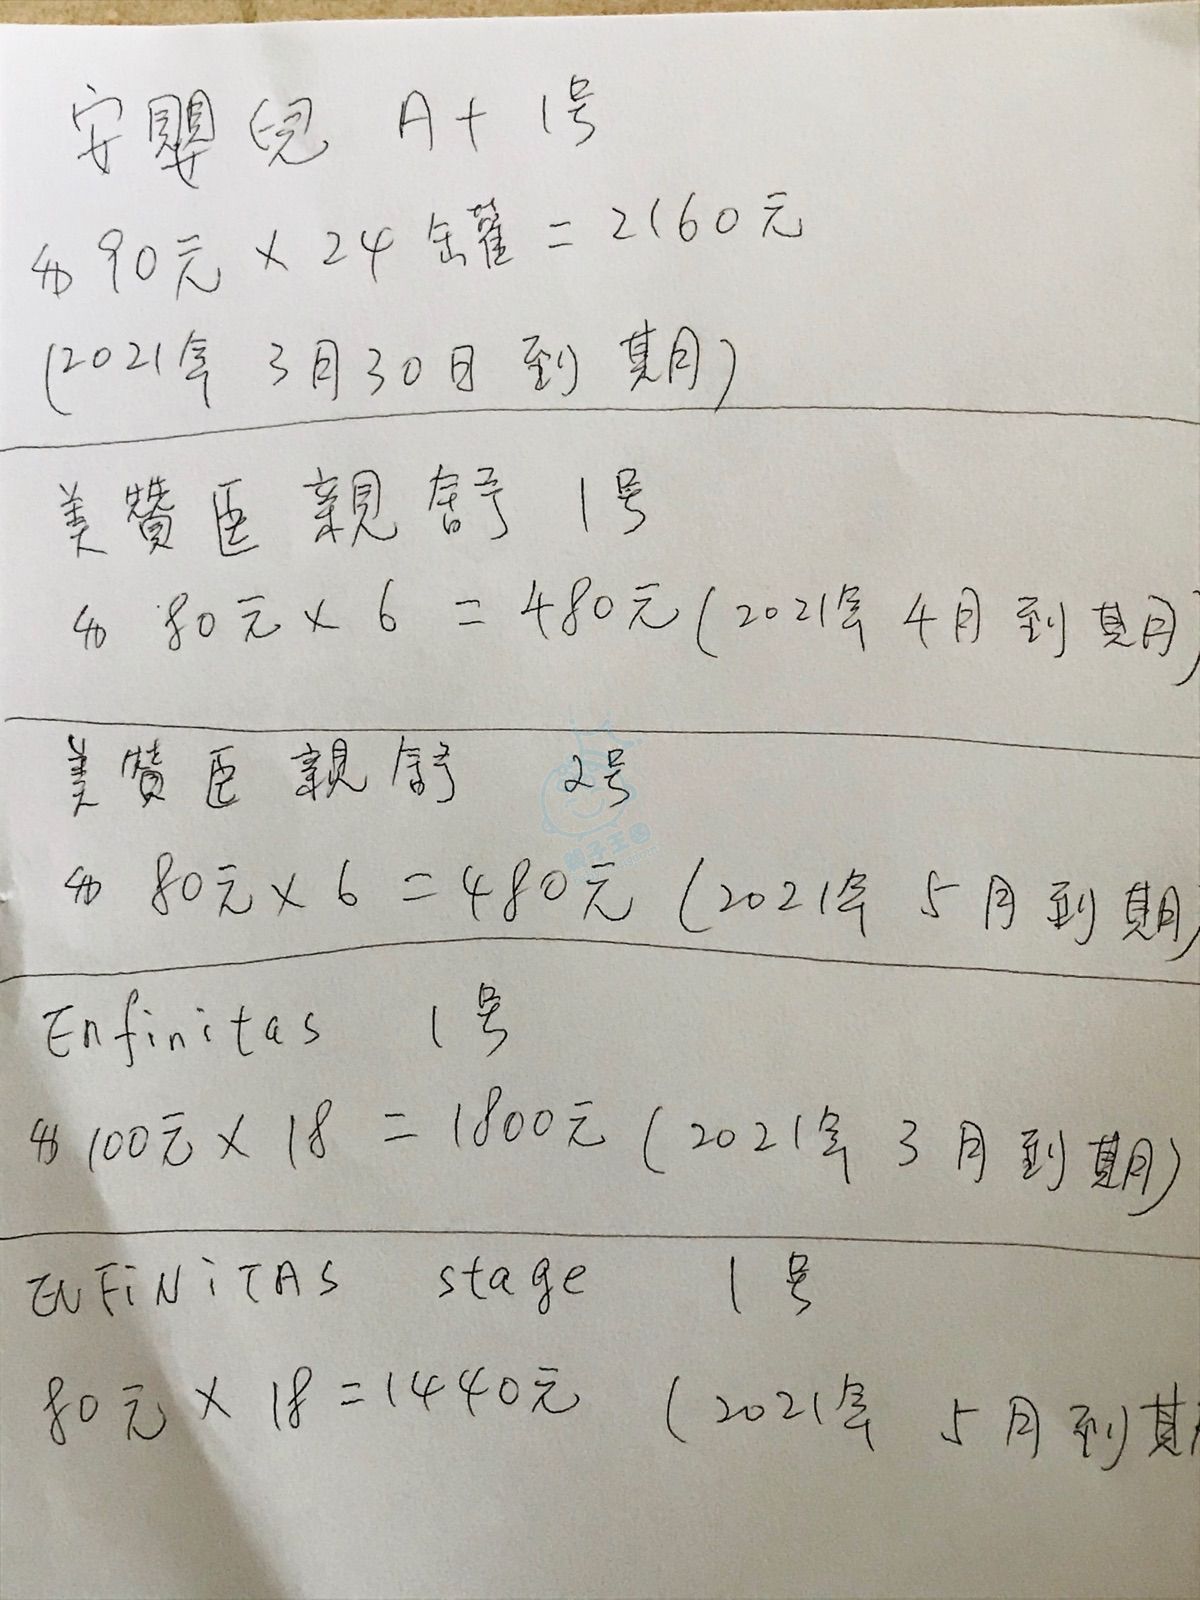 安嬰兒 A+ 1号
$90元 × 24 罐 = 2160元
(2021年 3月30日 到 期)
美贊臣 親舒 1号
$80元 × 6 = 480元 (2021年 4月到期)
美贊臣 親舒 2号
$80元 × 6 = 480元 (2021年 5月到期
Enfinitas 1号
$100元 × 18 = 1800元 (2021年 3月到期)
ENFiNiTAS stage 1号
80元 × 18 = 1440元 (2021年 5月到期
親子王國